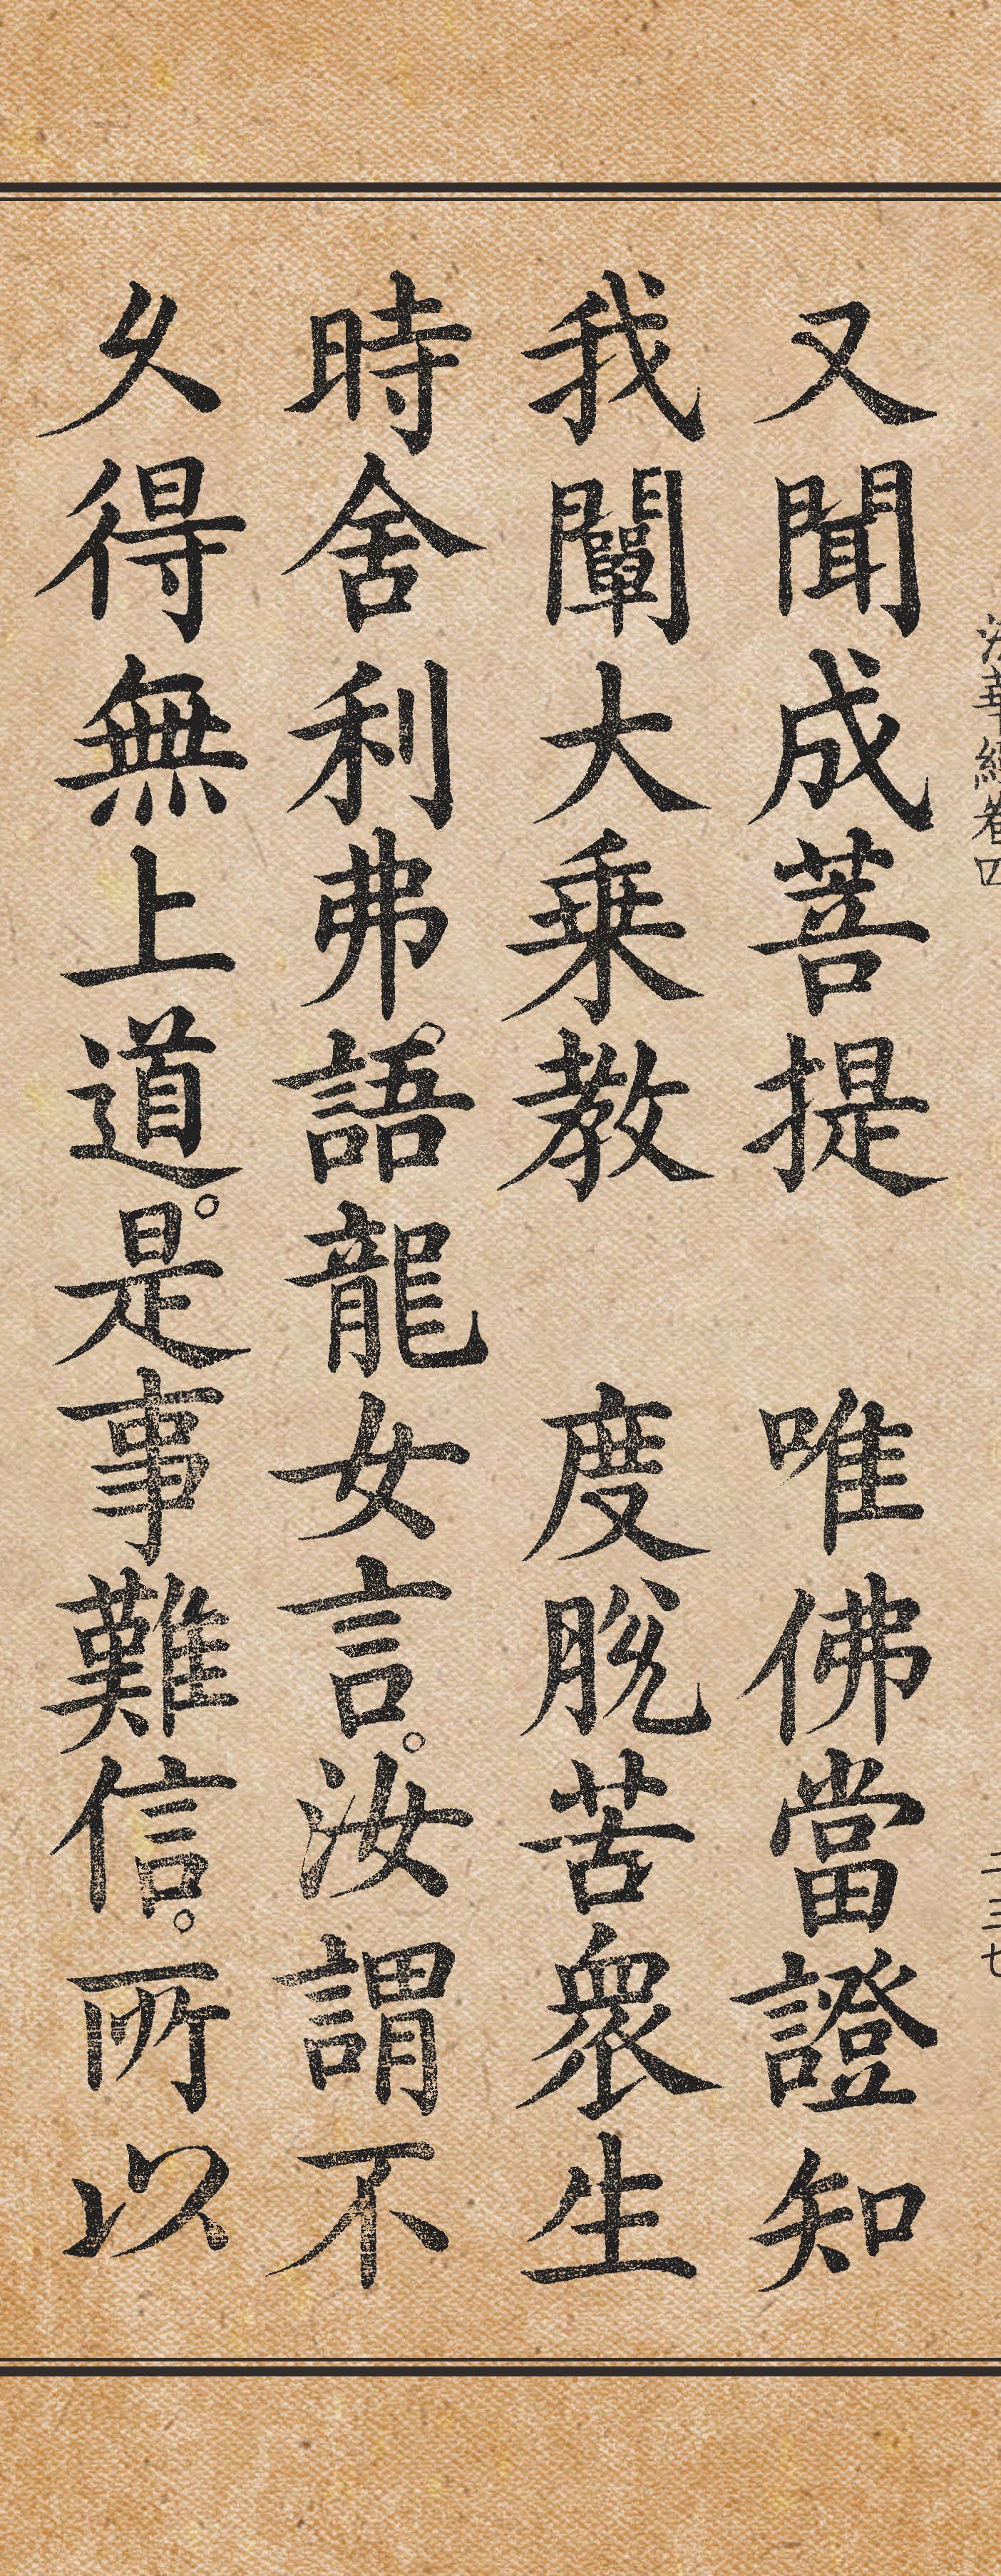 法華經卷四
二三七
又聞成菩提 唯佛當證知
我闡大乘教 度脫苦眾生
時舍利弗。語龍女言。汝謂不
久得無上道。是事難信。所以